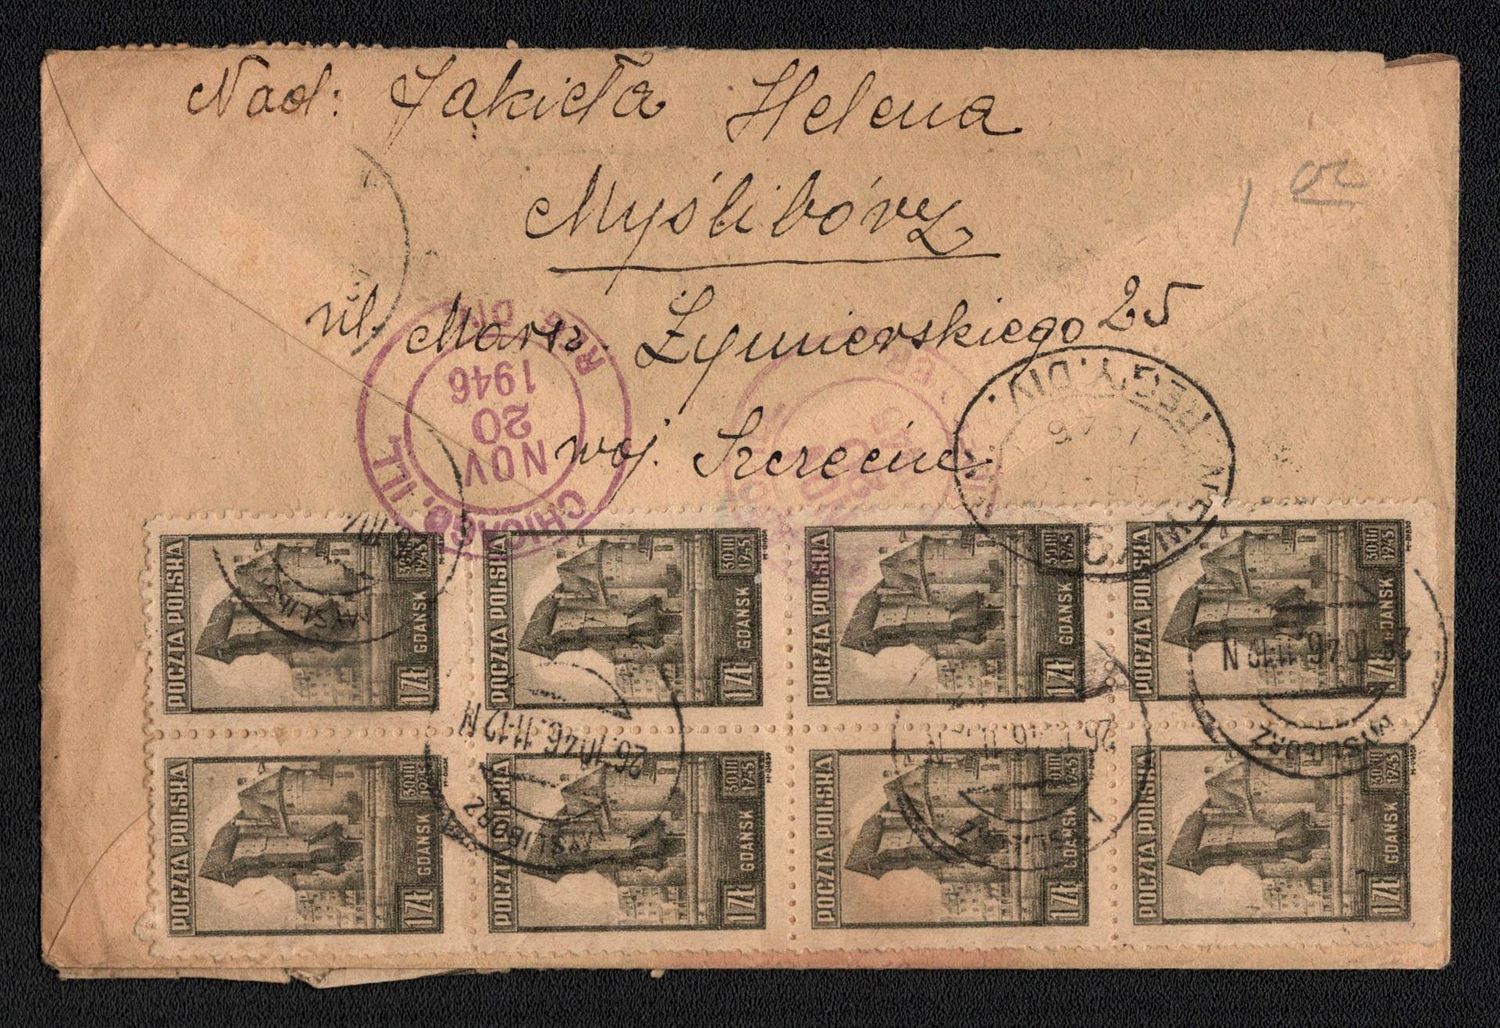 Nad: Jakieła Helena
Myślibórz
ul. Marsz. Żymierskiego 25
woj. Szczecin
CHICAGO, ILL.
REG. DIV.
NOV
20
1946
REG'Y. DIV.
POCZTA POLSKA
30 III
1945
GDAŃSK
1 ZŁ
POCZTA POLSKA
30 III
1945
GDAŃSK
1 ZŁ
POCZTA POLSKA
30 III
1945
GDAŃSK
1 ZŁ
POCZTA POLSKA
30 III
1945
GDAŃSK
1 ZŁ
POCZTA POLSKA
30 III
1945
GDAŃSK
1 ZŁ
POCZTA POLSKA
30 III
1945
GDAŃSK
1 ZŁ
POCZTA POLSKA
30 III
1945
GDAŃSK
1 ZŁ
POCZTA POLSKA
30 III
1945
GDAŃSK
1 ZŁ
MYŚLIBÓRZ
26.10.46.11-12 N
MYŚLIBÓRZ
26.10.46.11-12 N